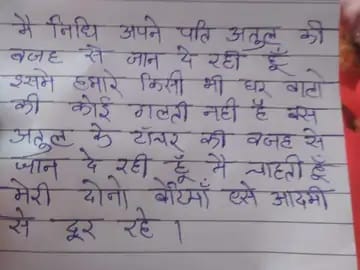 मै निधि अपने पति अतुल की
वजह से जान दे रही हूँ
इसमे हमारे किसी भी घर वालो
की कोई गलती नही है बस
अतुल के टॉचर की वजह से
जान दे रही हूँ मै चाहती हूँ
मेरी दोनो बेटियाँ ऐसे आदमी
से दूर रहे ।